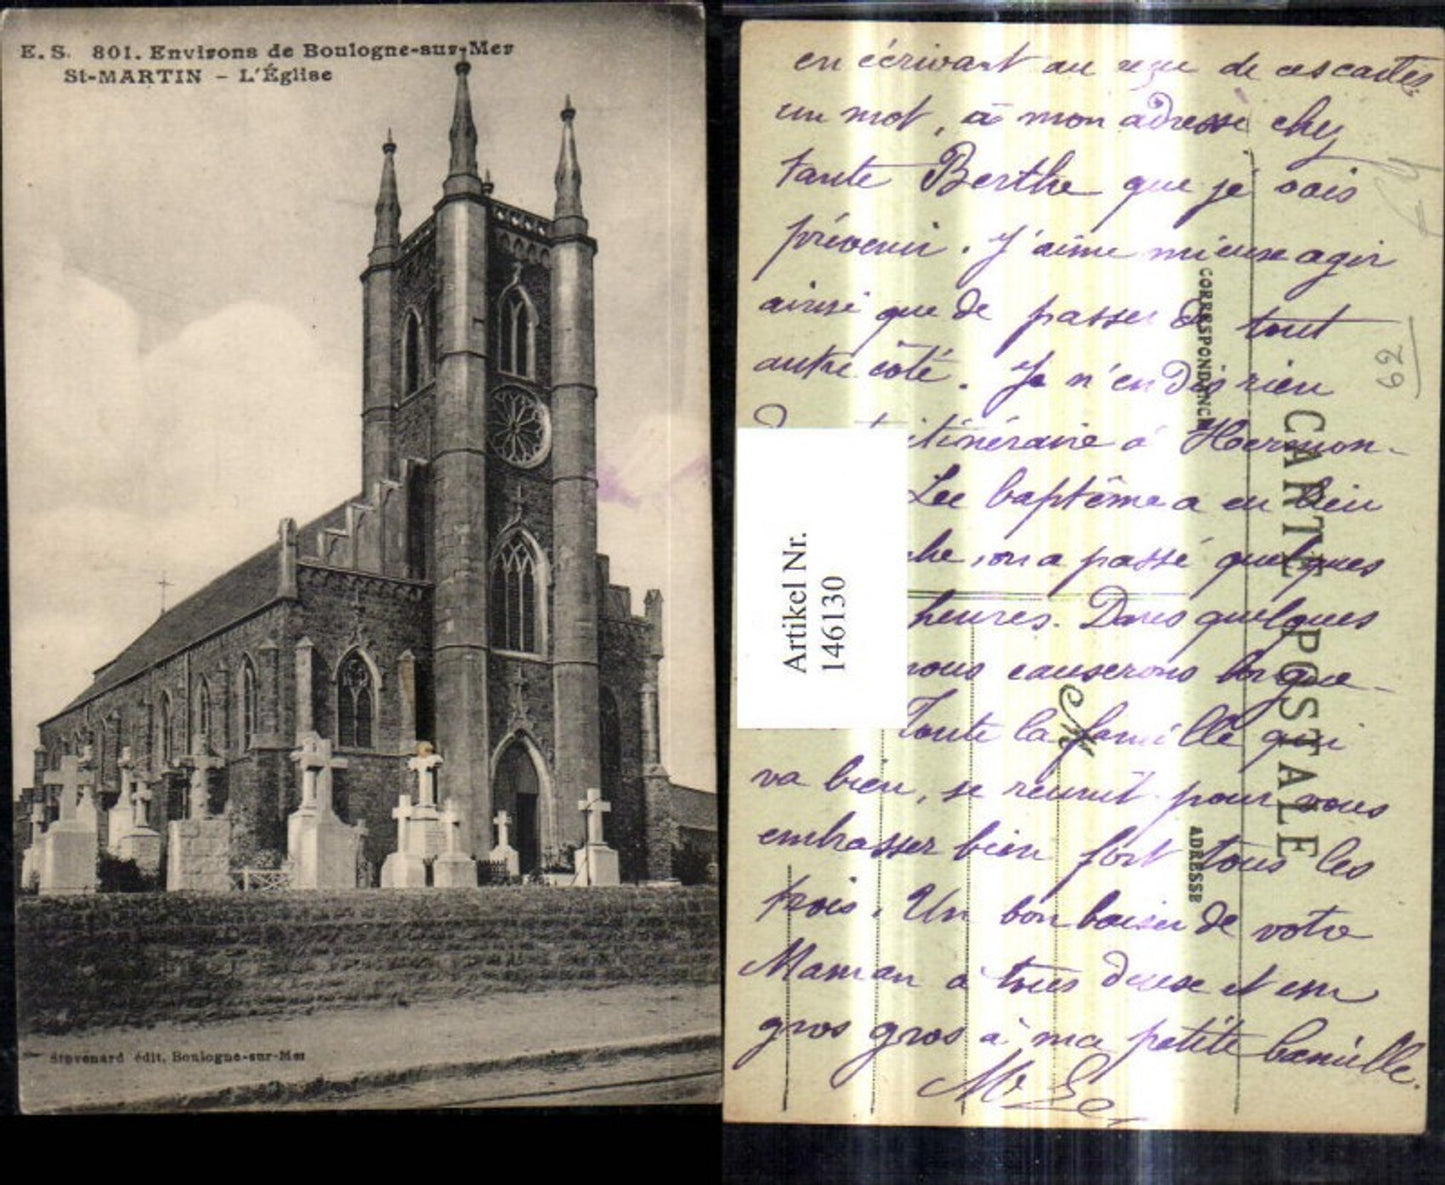 E. S. 801. Environs de Boulogne-sur-Mer
St-MARTIN - L'Église
Stevenard édit, Boulogne-sur-Mer
en écrivant au reçu de ces cartes
un mot, à mon adresse chez
tante Berthe que je vais
prévenir. J'aime mieux agir
ainsi que de passer de tout
autre côté. Je n'en dis rien
itinéraire à Hermon-
Le baptême a eu lieu
che, on a passé quelques
heures. Dans quelques
nous causerons longue-
Toute la famille qui
va bien, se réunit pour vous
embrasser bien fort tous les
trois. Un bon baiser de votre
Maman à tous deux et un
gros gros à ma petite
CORRESPONDANCE
CARTE POSTALE
ADRESSE
62
Artikel Nr.
146130